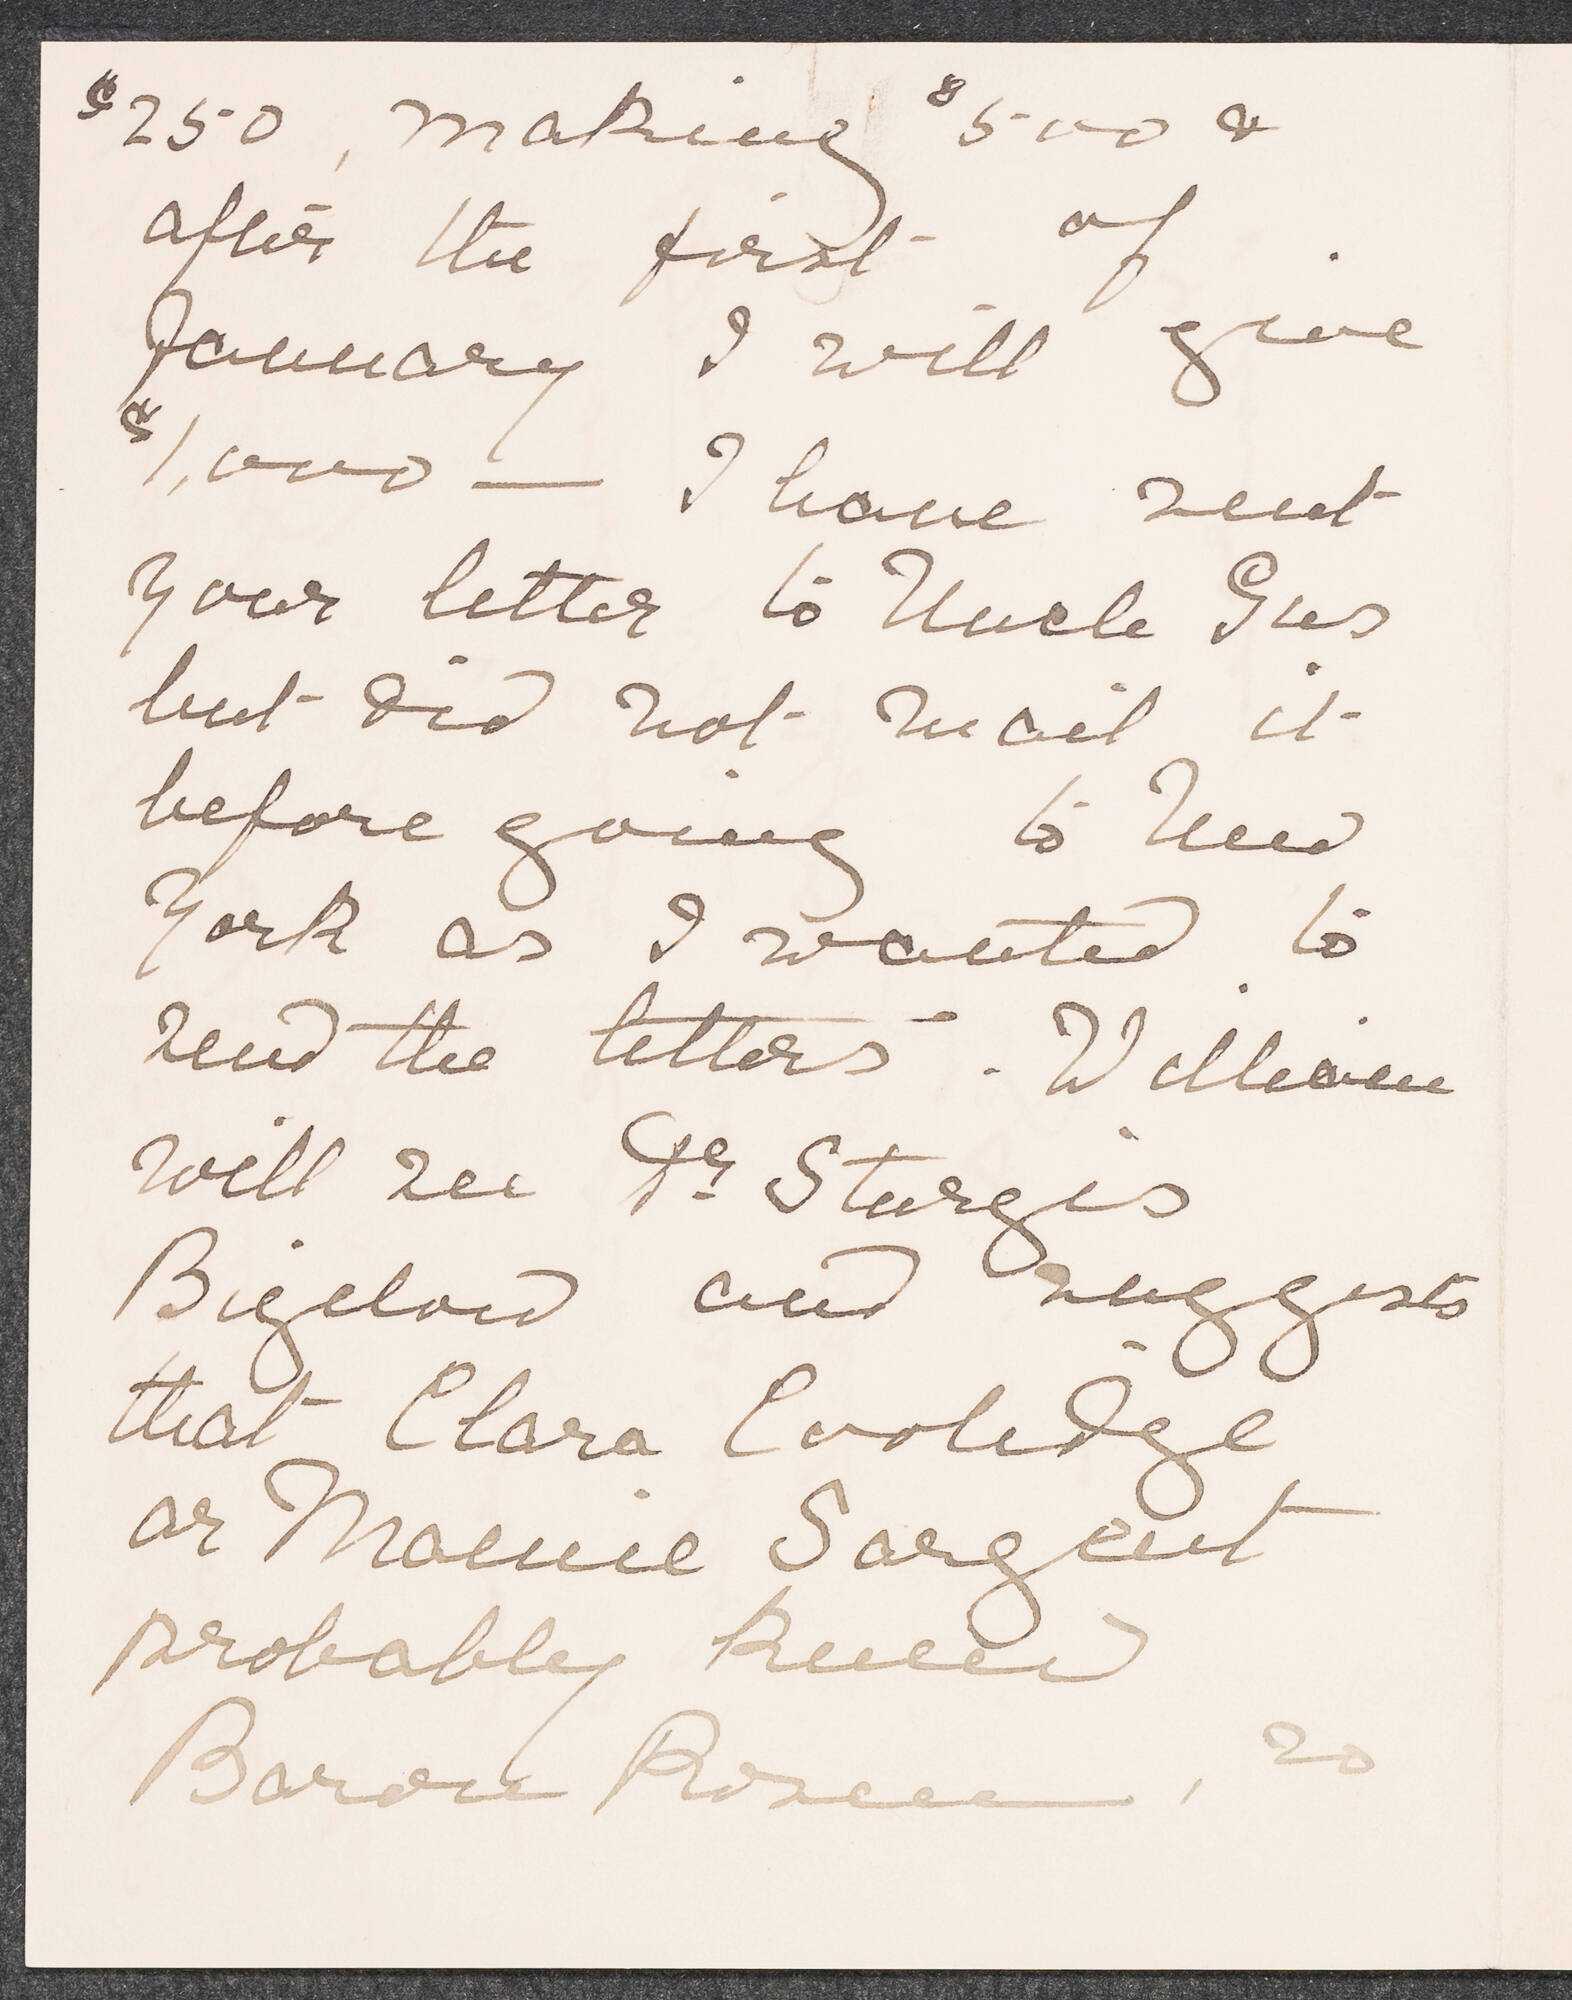 $250, making $500 &
after the first of
January I will give
$1,000 — I have sent
your letter to Uncle Gus
but did not mail it
before going to New
York as I wanted to
send the letters. William
will see Dr Sturgis
Bigelow and suggests
that Clara Coolidge
or Mamie Sargent
probably knew
Baron Rosen, so